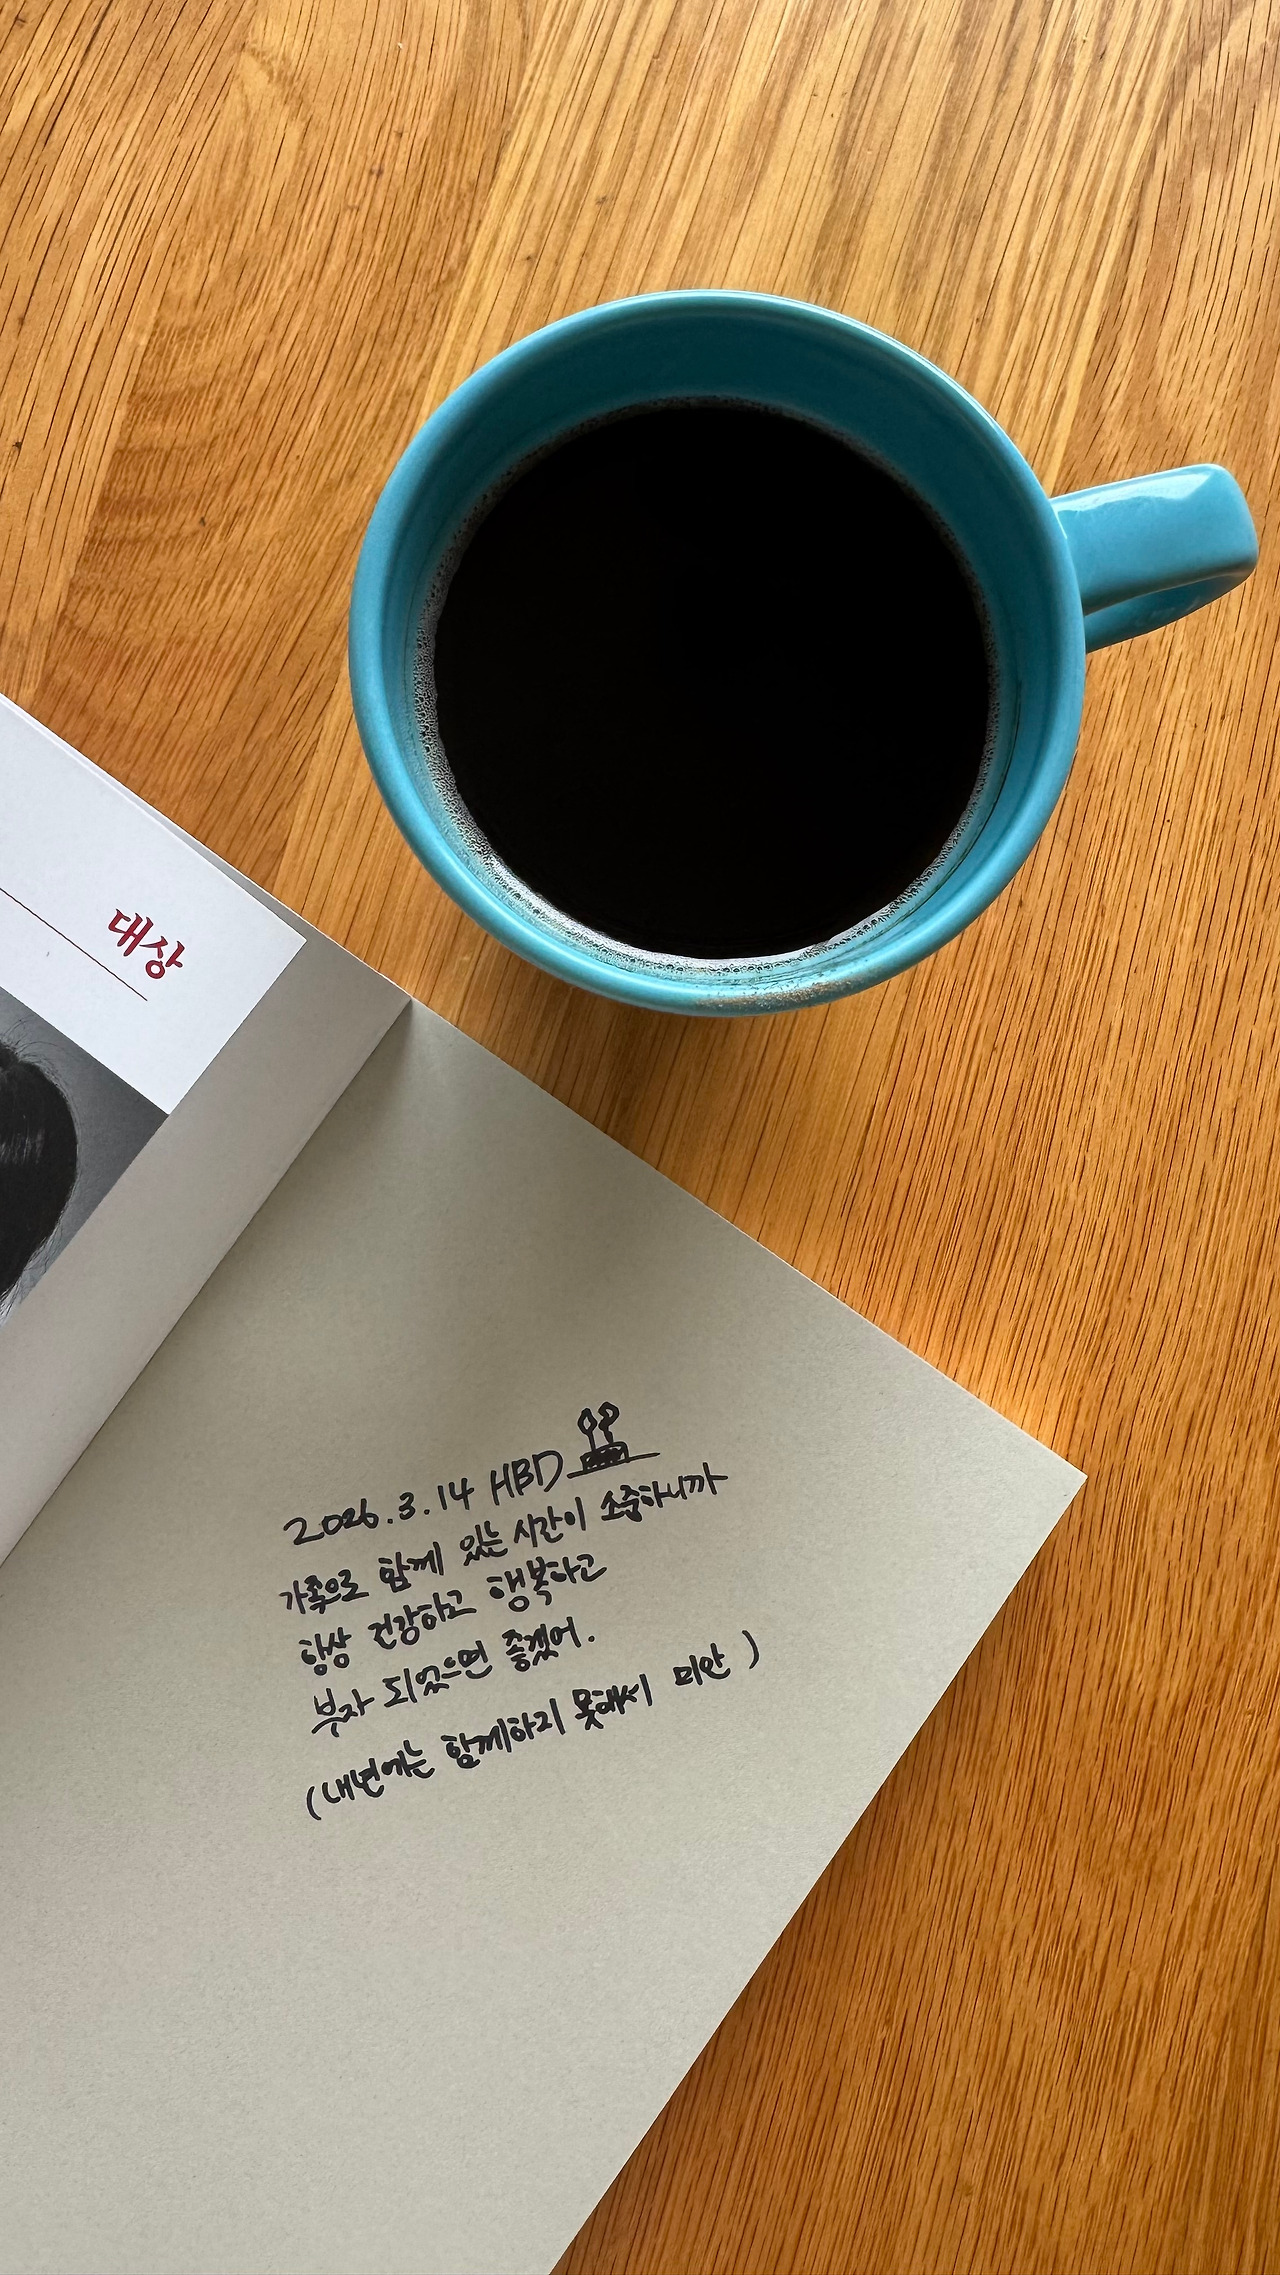 대상
2026.3.14 HBD
가족으로 함께 있는 시간이 소중하니까
항상 건강하고 행복하고
부자 되었으면 좋겠어.
(내년에는 함께하지 못해서 미안)